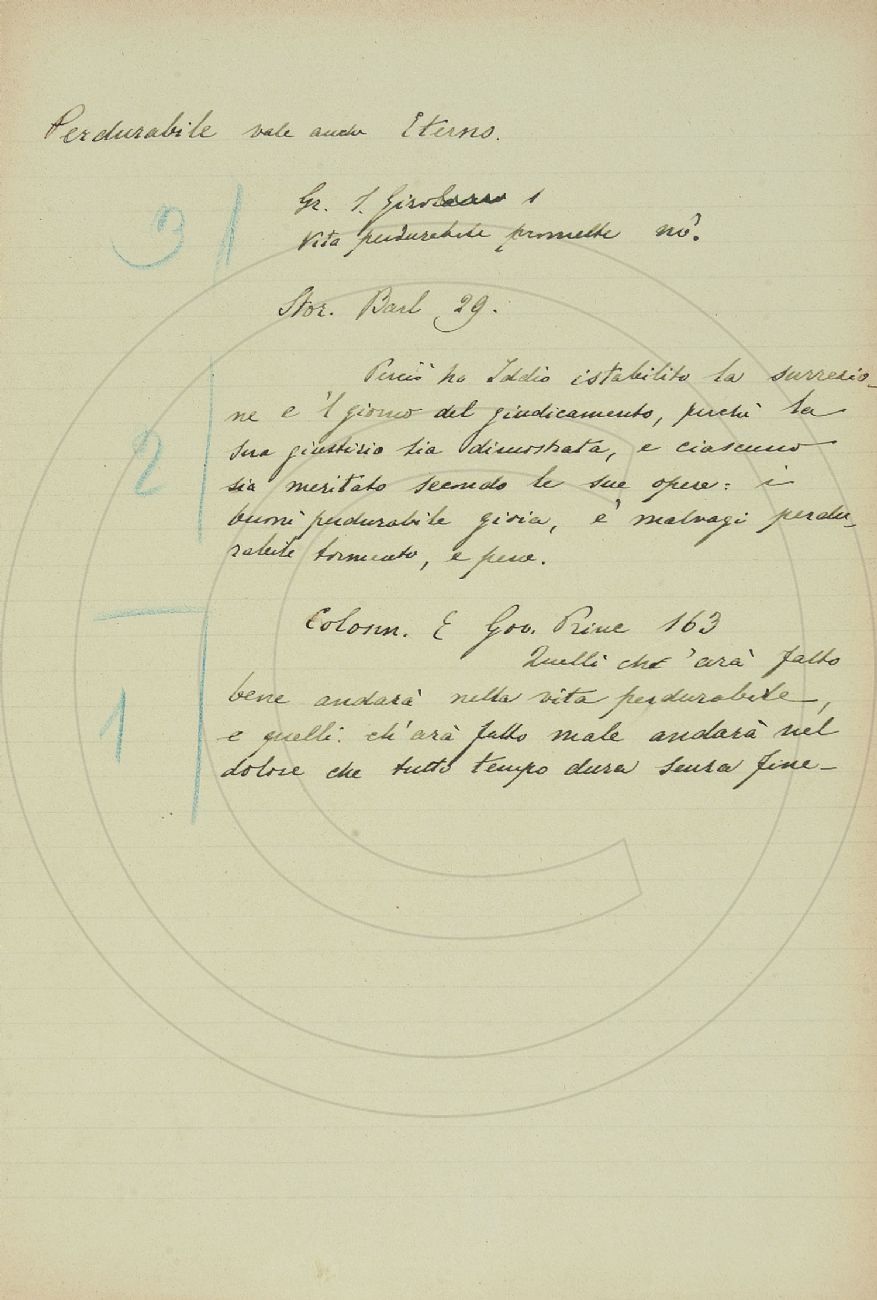 Perdurabile vale anche Eterno.
Gr. S. Girolamo 1
3
Vita perdurabile promette nô.
Stor. Barl 29.
Perciò ha Iddio istabilito la surressio-
ne e 'l giorno del giudicamento, perchè la
sua giustizia sia dimostrata, e ciascuno
2
sia meritato secondo le sue opere: i
buoni perdurabile gioia, e' malvagi perdu-
rabile tormento, e pene.
Colonn. E Gov. Princ 163
Quelli che 'arà fatto
1
bene andarà nella vita perdurabile,
e quelli ch'arà fatto male andarà nel
dolore che tutto tempo dura senza fine-